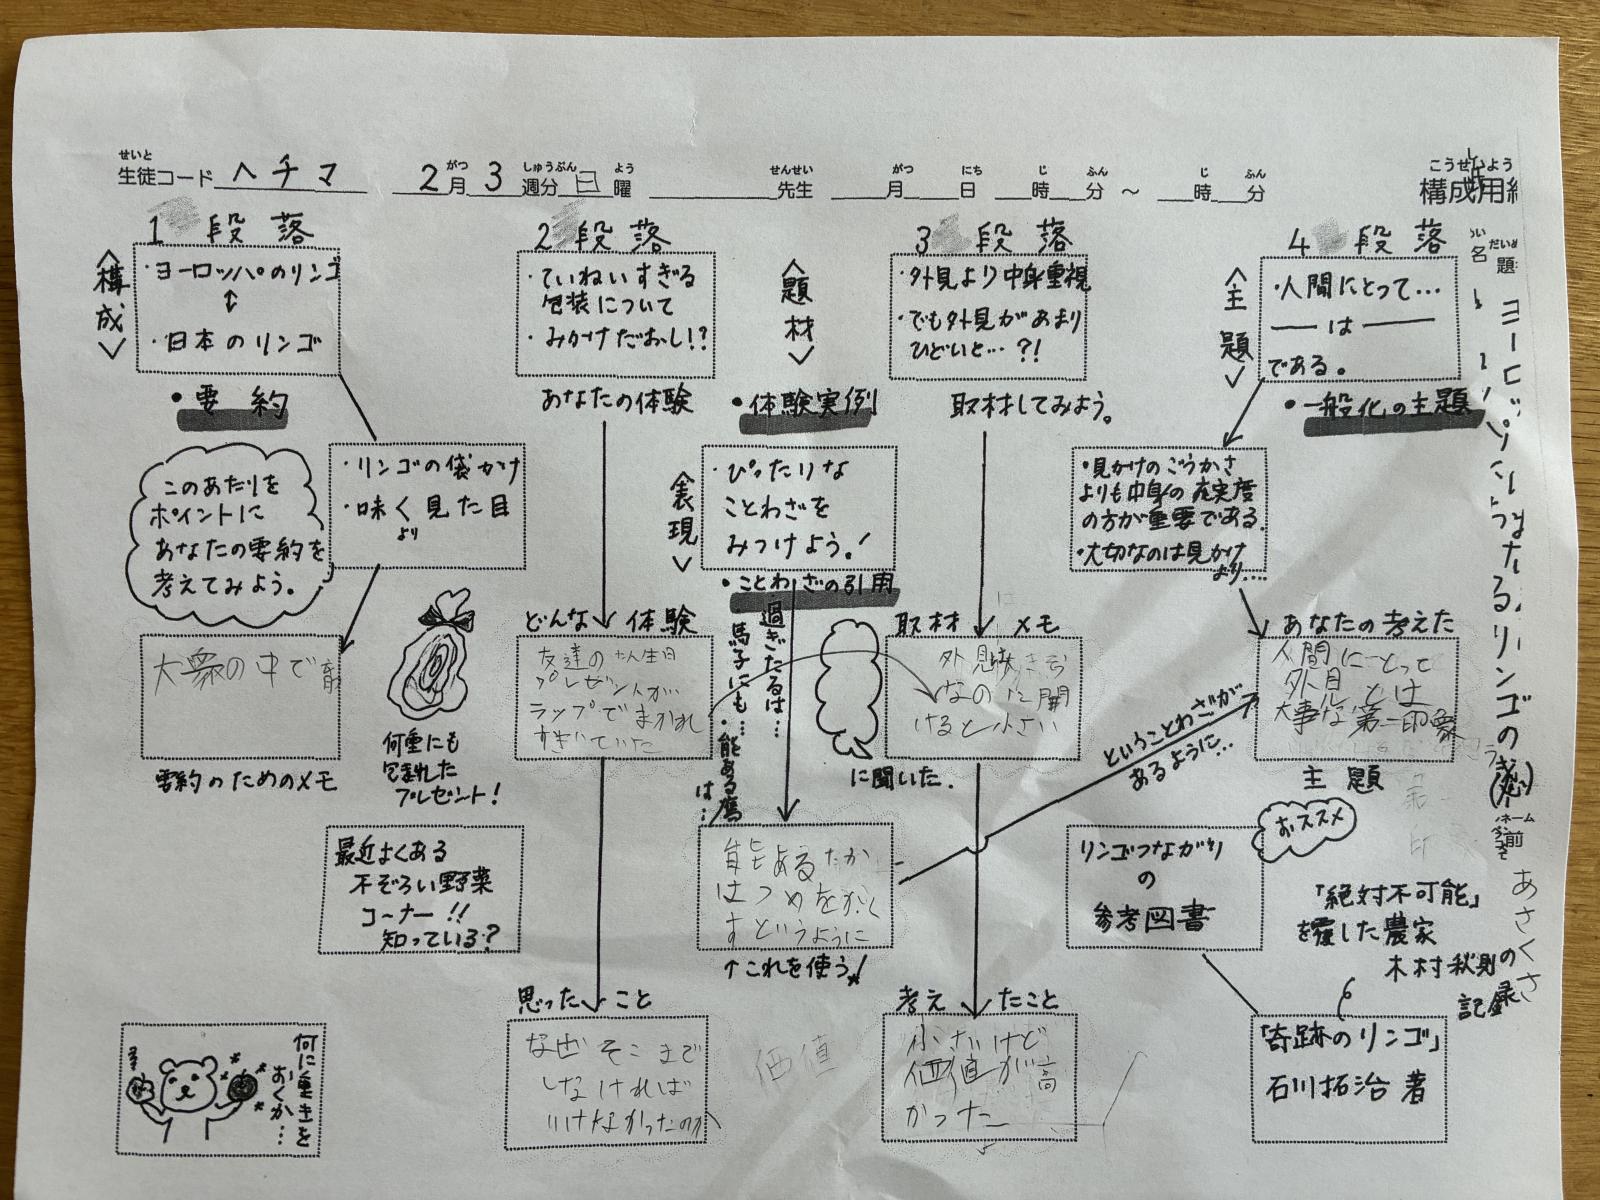 せいと がつ しゅうぶん よう せんせい がつ にち じ ふん じ ふん こうせいようし
生徒コード ヘチマ 2月3週分 日曜 先生 月 日 時 分 ～ 時 分 構成用紙
1 段落
〈構成〉
・ヨーロッパのリンゴ
↕
・日本のリンゴ
・要約
このあたりを
ポイントに
あなたの要約を
考えてみよう。
・リンゴの袋かけ
・味く見た目
より
大衆の中で
要約のためのメモ
何重にも
包まれた
プレゼント!
最近よくある
不ぞろい野菜
コーナー!!
知っている?
何に重きを
おくか…
2 段落
・ていねいすぎる
包装について
・みかけだおし!?
あなたの体験
どんな体験
友達のたん生日
プレゼントが
ラップでまかれ
すぎていた
思ったこと
なぜそこまで
しなければ
いけなかったのか
〈題材〉
・体験実例
〈表現〉
・ぴったりな
ことわざを
みつけよう!
・ことわざの引用
過ぎたるは…
馬子にも…
・能ある鷹
は…
能あるたか
はつめをかく
すというように
↑これを使う!
価値
3 段落
・外見より中身重視
・でも外見があまり
ひどいと…?!
取材してみよう。
取材メモ
なのに開
けると小さい
に聞いた。
考えたこと
小さいけど
価値が高
かった
4 段落
〈主題〉
・人間にとって…
── は ──
である。
・一般化の主題
・見かけのごうかさ
よりも中身の充実度
の方が重要である。
・大切なのは見かけ
より….
あなたの考えた
人間にとって
外見とは
大事な第一印象
主題
ということわざが
あるように…
リンゴつながり
の
参考図書
おススメ
「絶対不可能」
を覆した農家
木村秋則の
記録
「奇跡のリンゴ」
石川拓治 著
だいめい
題名
ネーム
名前
あさくさ